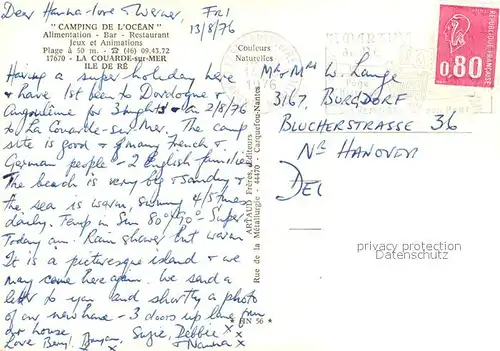 Dear Hanna-lore & Werner, FRI
13/8/76
"CAMPING DE L'OCÉAN"
Alimentation - Bar - Restaurant
Jeux et Animations
Plage à 50 m. - ☎ (46) 09.43.72
17670 - LA COUARDE-sur-MER
ILE DE RÉ
Having a super holiday here
& have 1st been to Dordogne &
Angoulime for 3 nights & on 2/8/76
to La Couarde-sur Mer. The camp
site is good & many French &
German people - 2 English families
The beach is very big & sandy &
the sea is warm, swimming 4/5 times
daily. Temp in Sun 80° 90° Super
Today am. Rain shower but warm
It is a picturesque island & we
may come here again. We send a
letter to you and shortly a photo
of our new home - 3 doors up from
our house
Love Beryl, Suzie, Debbie x x
& Nanna x x
Couleurs
Naturelles
ARTAUD Frères, Editeurs
Rue de la Métallurgie - 44470 - Carquefou-Nantes
* FIN 56 *
RÉPUBLIQUE FRANÇAISE
0,80
Mr & Mrs W. Lange
3167, BURGDORF
BLUCHERSTRASSE 36
Nr HANOVER
privacy protection
Datenschutz